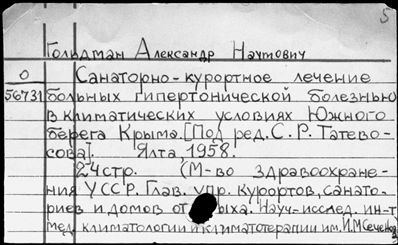 5
Голидман Александр Наумович
0 Санаторно-курортное лечение
56731 больных гипертонической болезнью
в климатических условиях Южного
берега Крыма. [Под ред. С. Р. Татево-
сова]. Ялта, 1958.
24 стр. (М-во здравоохране-
ния УССР. Глав. упр. курортов, санато-
риев и домов от ыха. Науч.-исслед. ин-т
мед. климатологии и климатотерапии им. И.М Сеченова